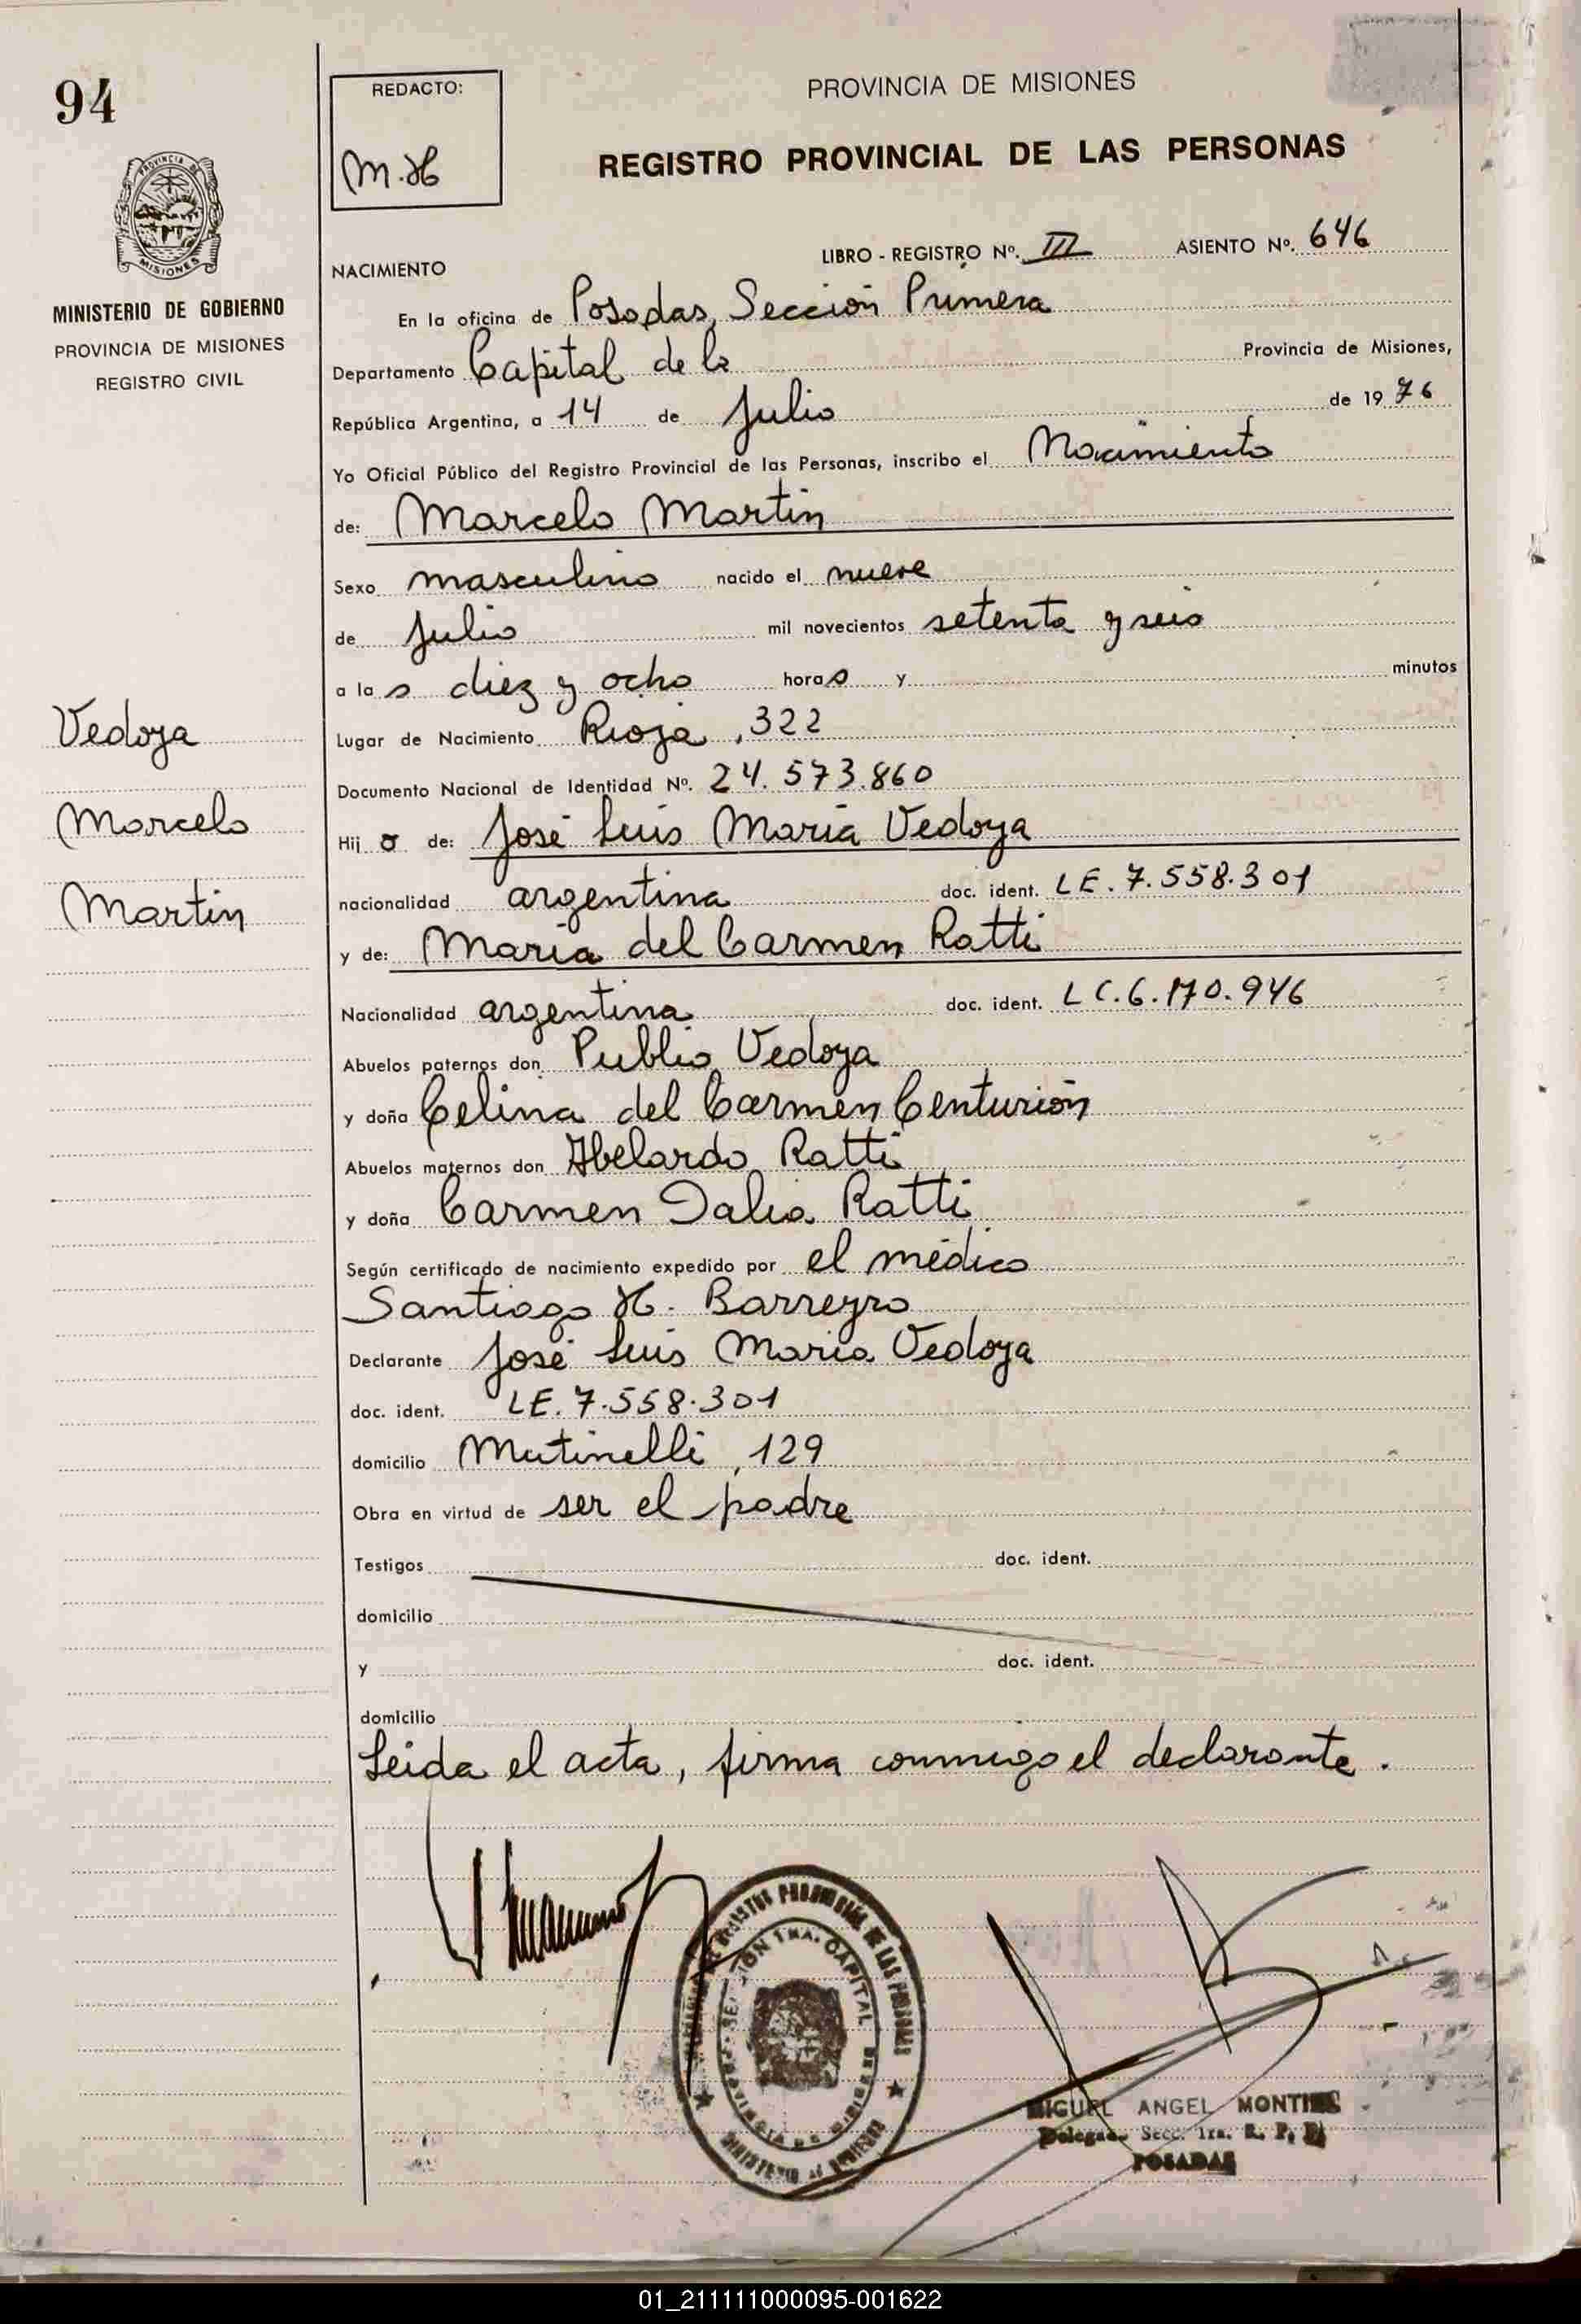 94
REDACTO:
M.H
PROVINCIA DE MISIONES
REGISTRO PROVINCIAL DE LAS PERSONAS
PROVINCIA DE
MISIONES
MINISTERIO DE GOBIERNO
PROVINCIA DE MISIONES
REGISTRO CIVIL
LIBRO - REGISTRO Nº. III ASIENTO Nº. 646
NACIMIENTO
En la oficina de Posadas, Sección Primera
Departamento Capital de la Provincia de Misiones,
República Argentina, a 14 de Julio de 1976
Yo Oficial Público del Registro Provincial de las Personas, inscribo el Nacimiento
de: Marcelo Martin
Sexo masculino nacido el nueve
de Julio mil novecientos setenta y seis
a las diez y ocho horas y minutos
Lugar de Nacimiento Rioja, 322
Documento Nacional de Identidad Nº. 24.573.860
Hijo de: José Luis María Vedoya
nacionalidad argentina doc. ident. LE. 7.558.301
y de: María del Carmen Ratti
Nacionalidad argentina doc. ident. LC. 6.170.946
Abuelos paternos don Publio Vedoya
y doña Celina del Carmen Centurión
Abuelos maternos don Abelardo Ratti
y doña Carmen Dalia Ratti
Según certificado de nacimiento expedido por el médico
Santiago H. Barreyro
Declarante José Luis María Vedoya
doc. ident. LE. 7.558.301
domicilio Mutinelli, 129
Obra en virtud de ser el padre
Testigos doc. ident.
domicilio
y doc. ident.
domicilio
Leida el acta, firma conmigo el declarante.
Vedoya
Marcelo
Martin
SECCION 1RA. CAPITAL
PROVINCIA DE MISIONES
MINISTERIO DE GOBIERNO
MIGUEL ANGEL MONTIEL
Delegado Secc. 1ra. R. P. P.
POSADAS
01_211111000095-001622